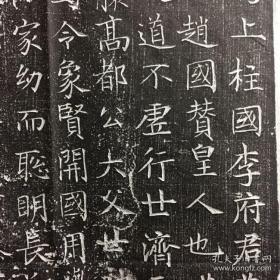 上柱國李府君
趙國贊皇人也
道不虛行世濟
高都公大父世
令象賢開國用
家幼而聡明長